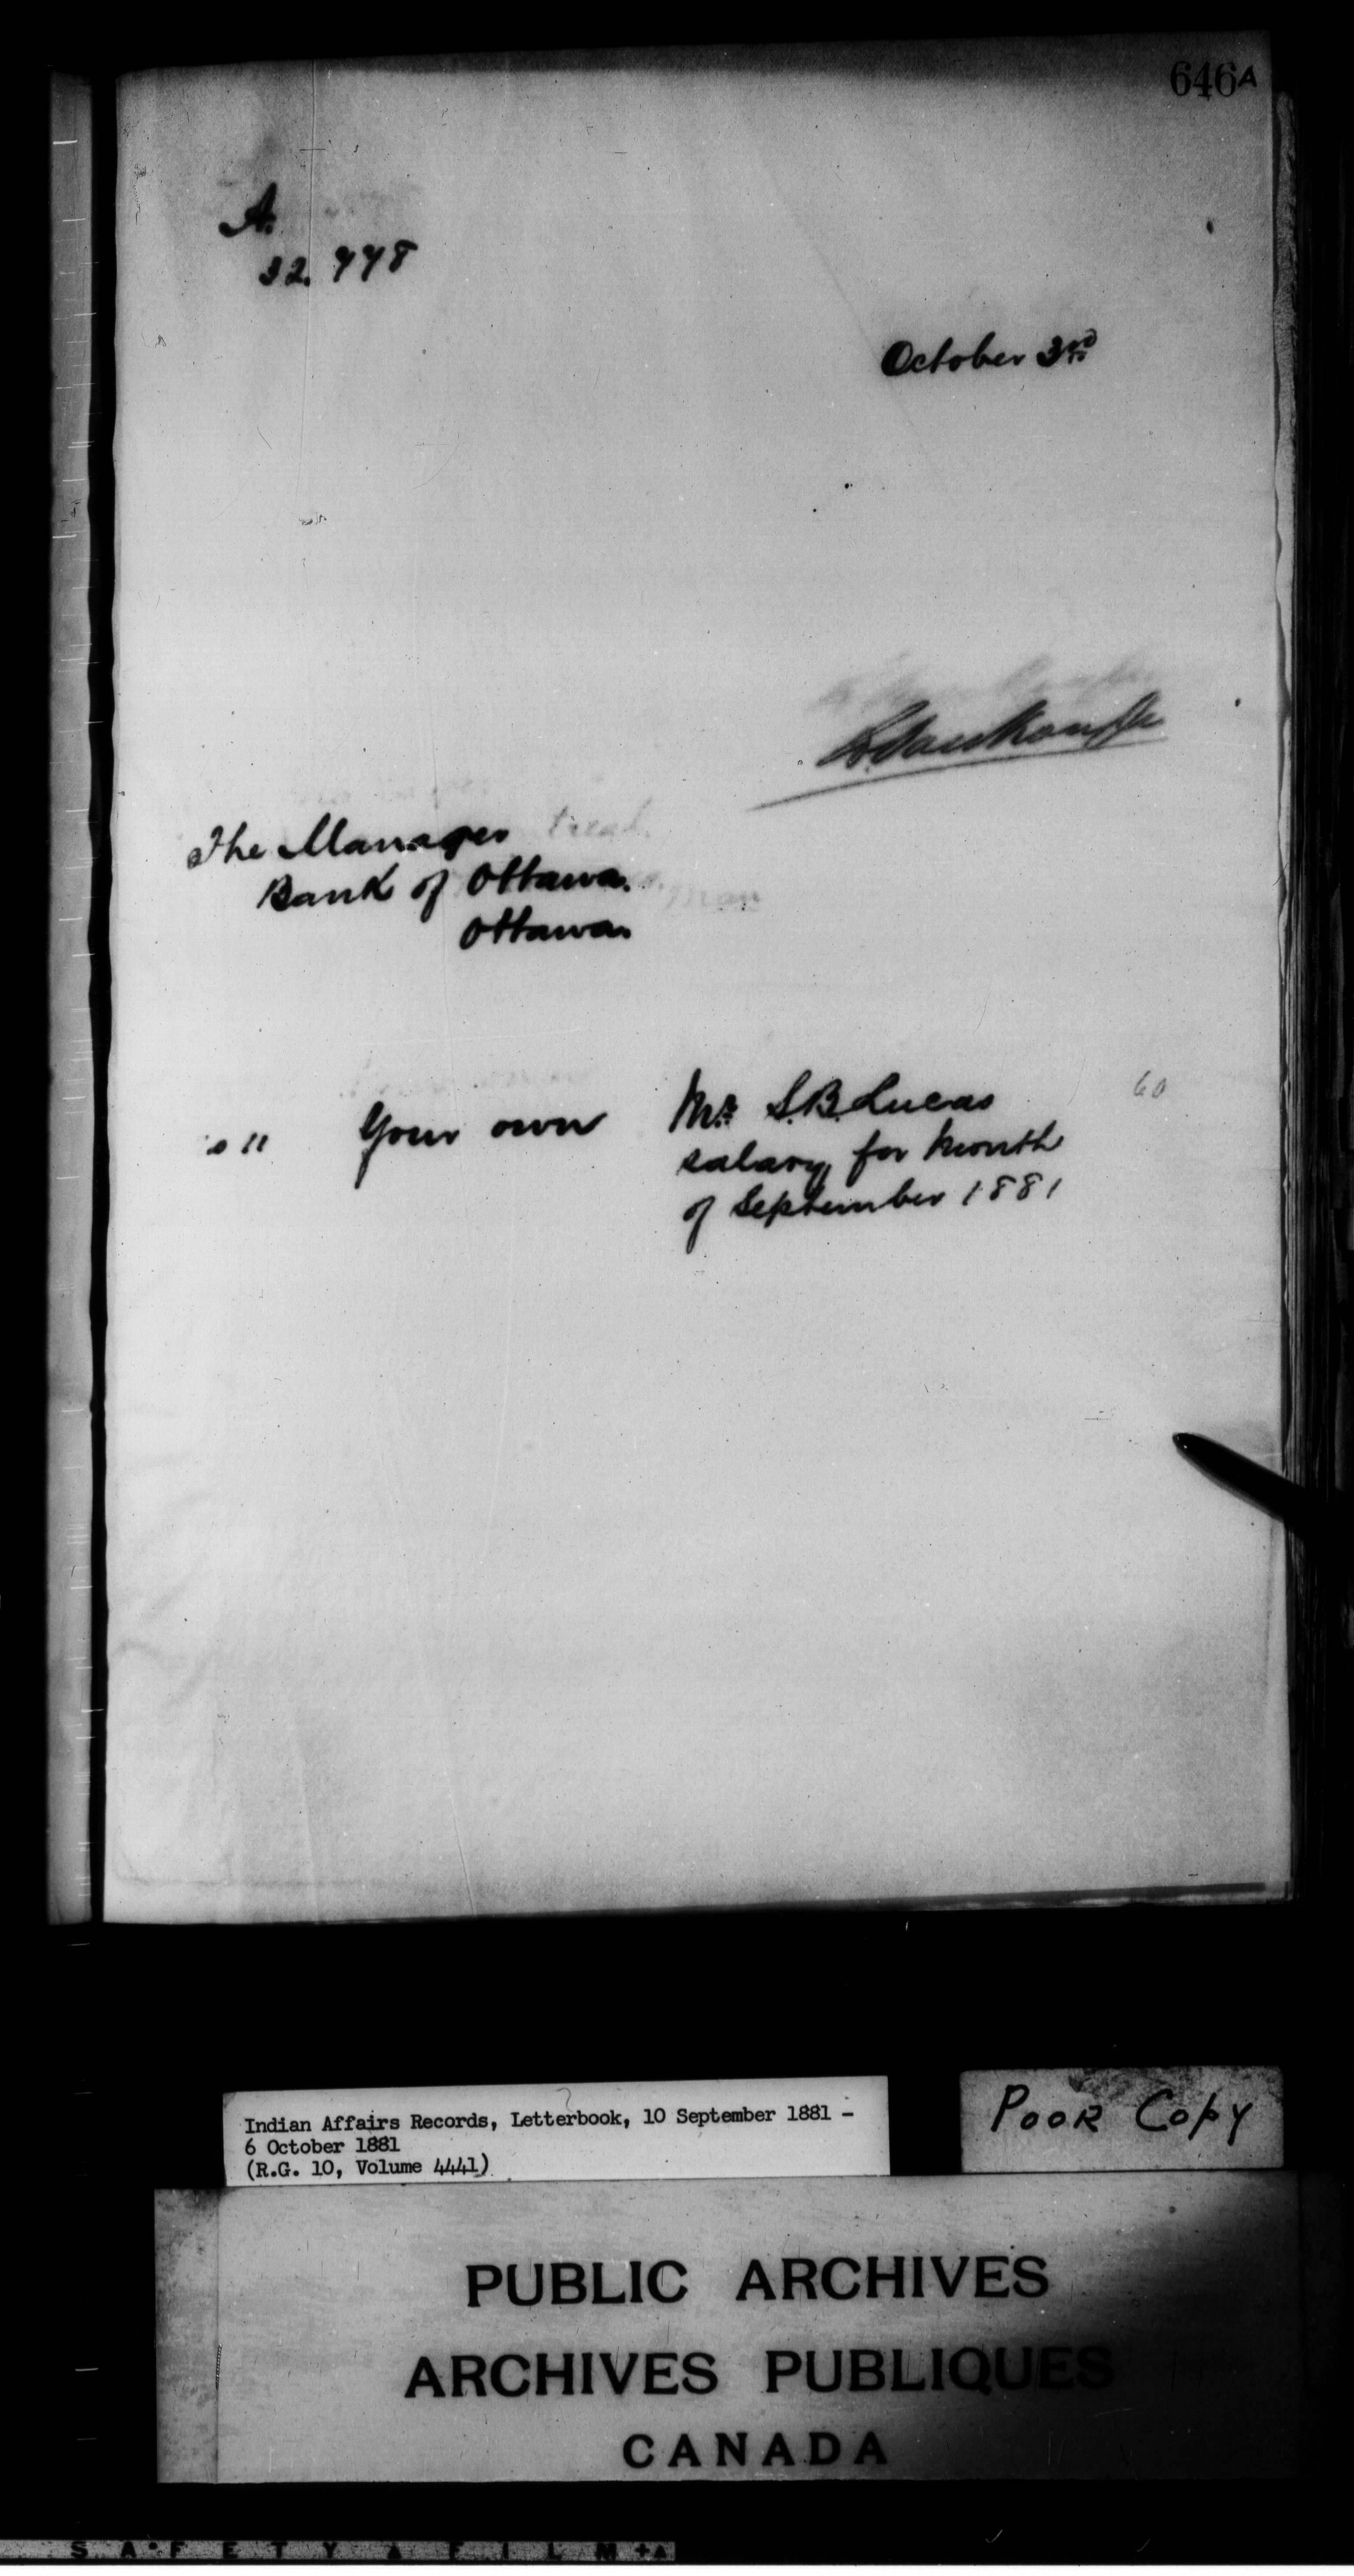 646A
A.
32.448
October 3rd
The Manager
Bank of Ottawa.
Ottawa.
Your own Mr. S.B. Lucas 60
salary for month
of September 1881
Indian Affairs Records, Letterbook, 10 September 1881 -
6 October 1881
(R.G. 10, Volume 4441)
Poor Copy
PUBLIC ARCHIVES
ARCHIVES PUBLIQUES
CANADA
SAFETY FILM